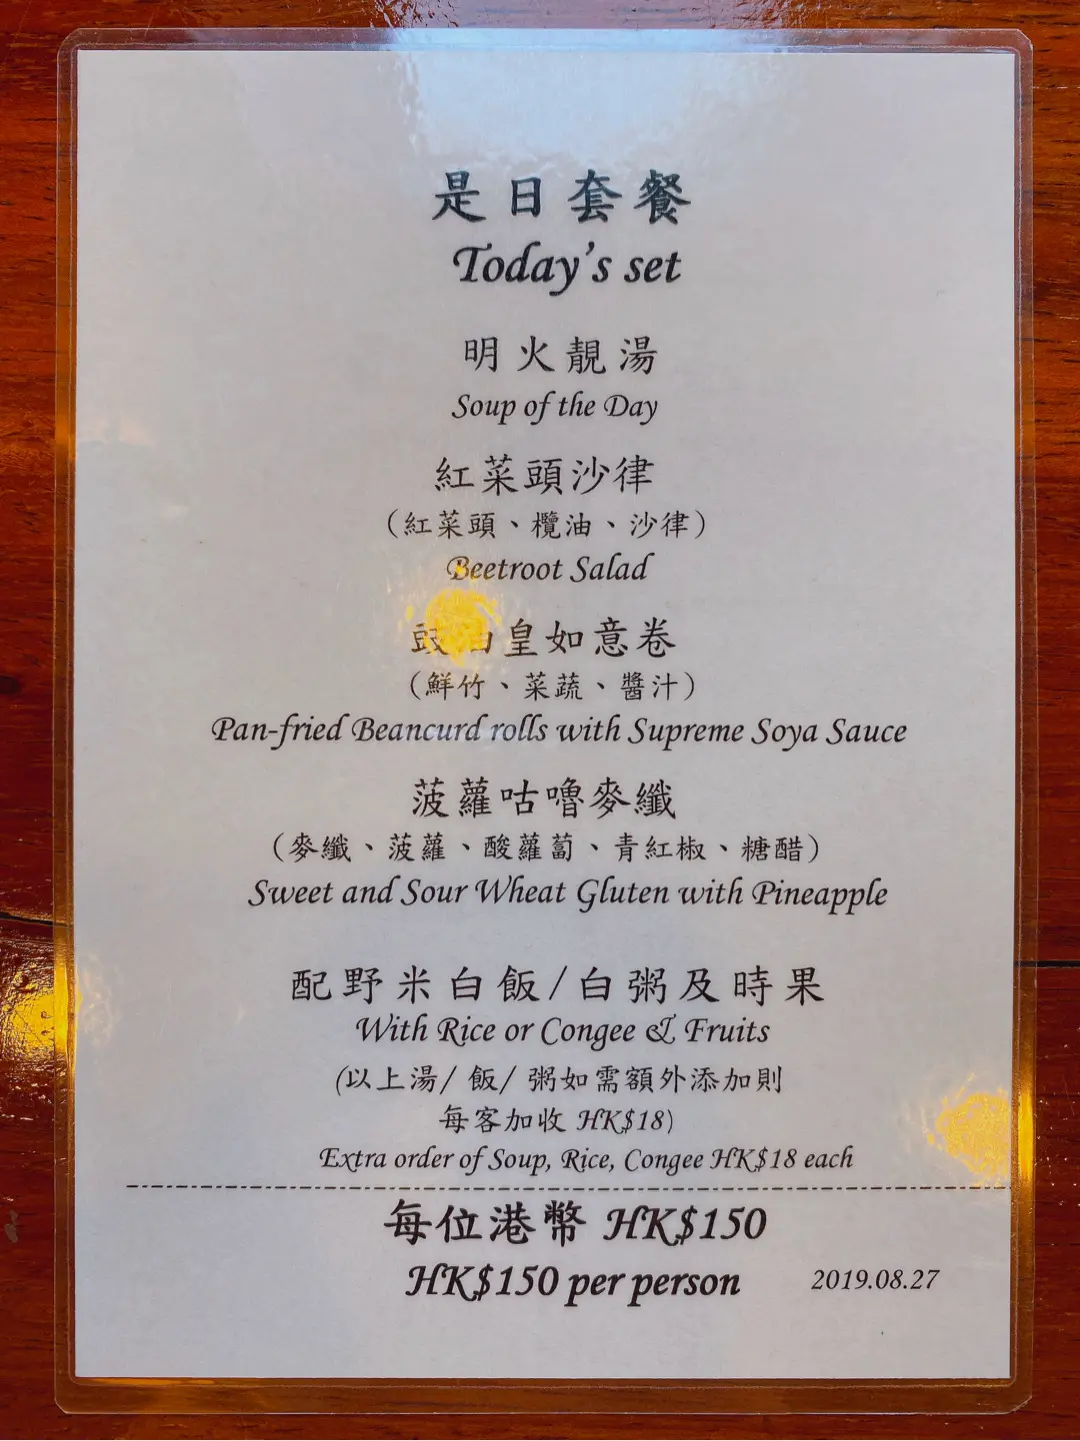 是日套餐
Today's set
明火靚湯
Soup of the Day
紅菜頭沙律
（紅菜頭、欖油、沙律）
Beetroot Salad
豉油皇如意卷
（鮮竹、菜蔬、醬汁）
Pan-fried Beancurd rolls with Supreme Soya Sauce
菠蘿咕嚕麥纖
（麥纖、菠蘿、酸蘿蔔、青紅椒、糖醋）
Sweet and Sour Wheat Gluten with Pineapple
配野米白飯/白粥及時果
With Rice or Congee & Fruits
(以上湯/ 飯/ 粥如需額外添加則
每客加收 HK$18)
Extra order of Soup, Rice, Congee HK$18 each
每位港幣 HK$150
HK$150 per person
2019.08.27